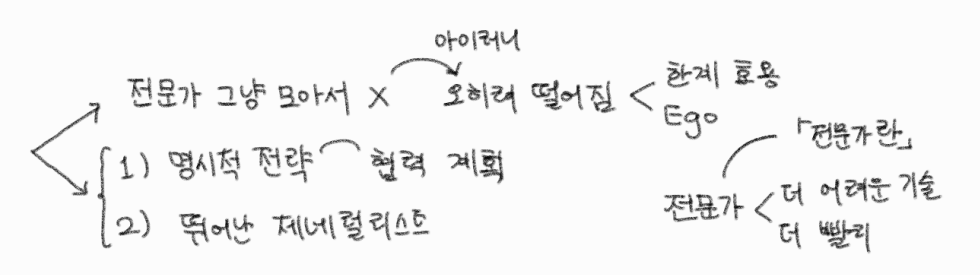 아이러니
전문가 그냥 모아서 X 오히려 떨어짐 < 한계 효용
Ego
1) 명시적 전략 협력 계획
2) 뛰어난 제네럴리스트
「전문가란」
전문가 < 더 어려운 기술
더 빨리